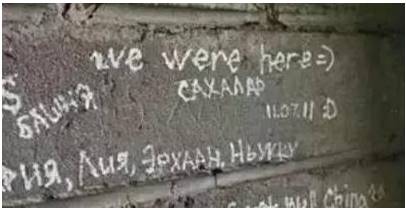 we were here=)
САХАЛАР
БАШНЯ
11.07.11 :D
РИЯ, Лия, ЭРХААН, НЬУКУУ
Wall China